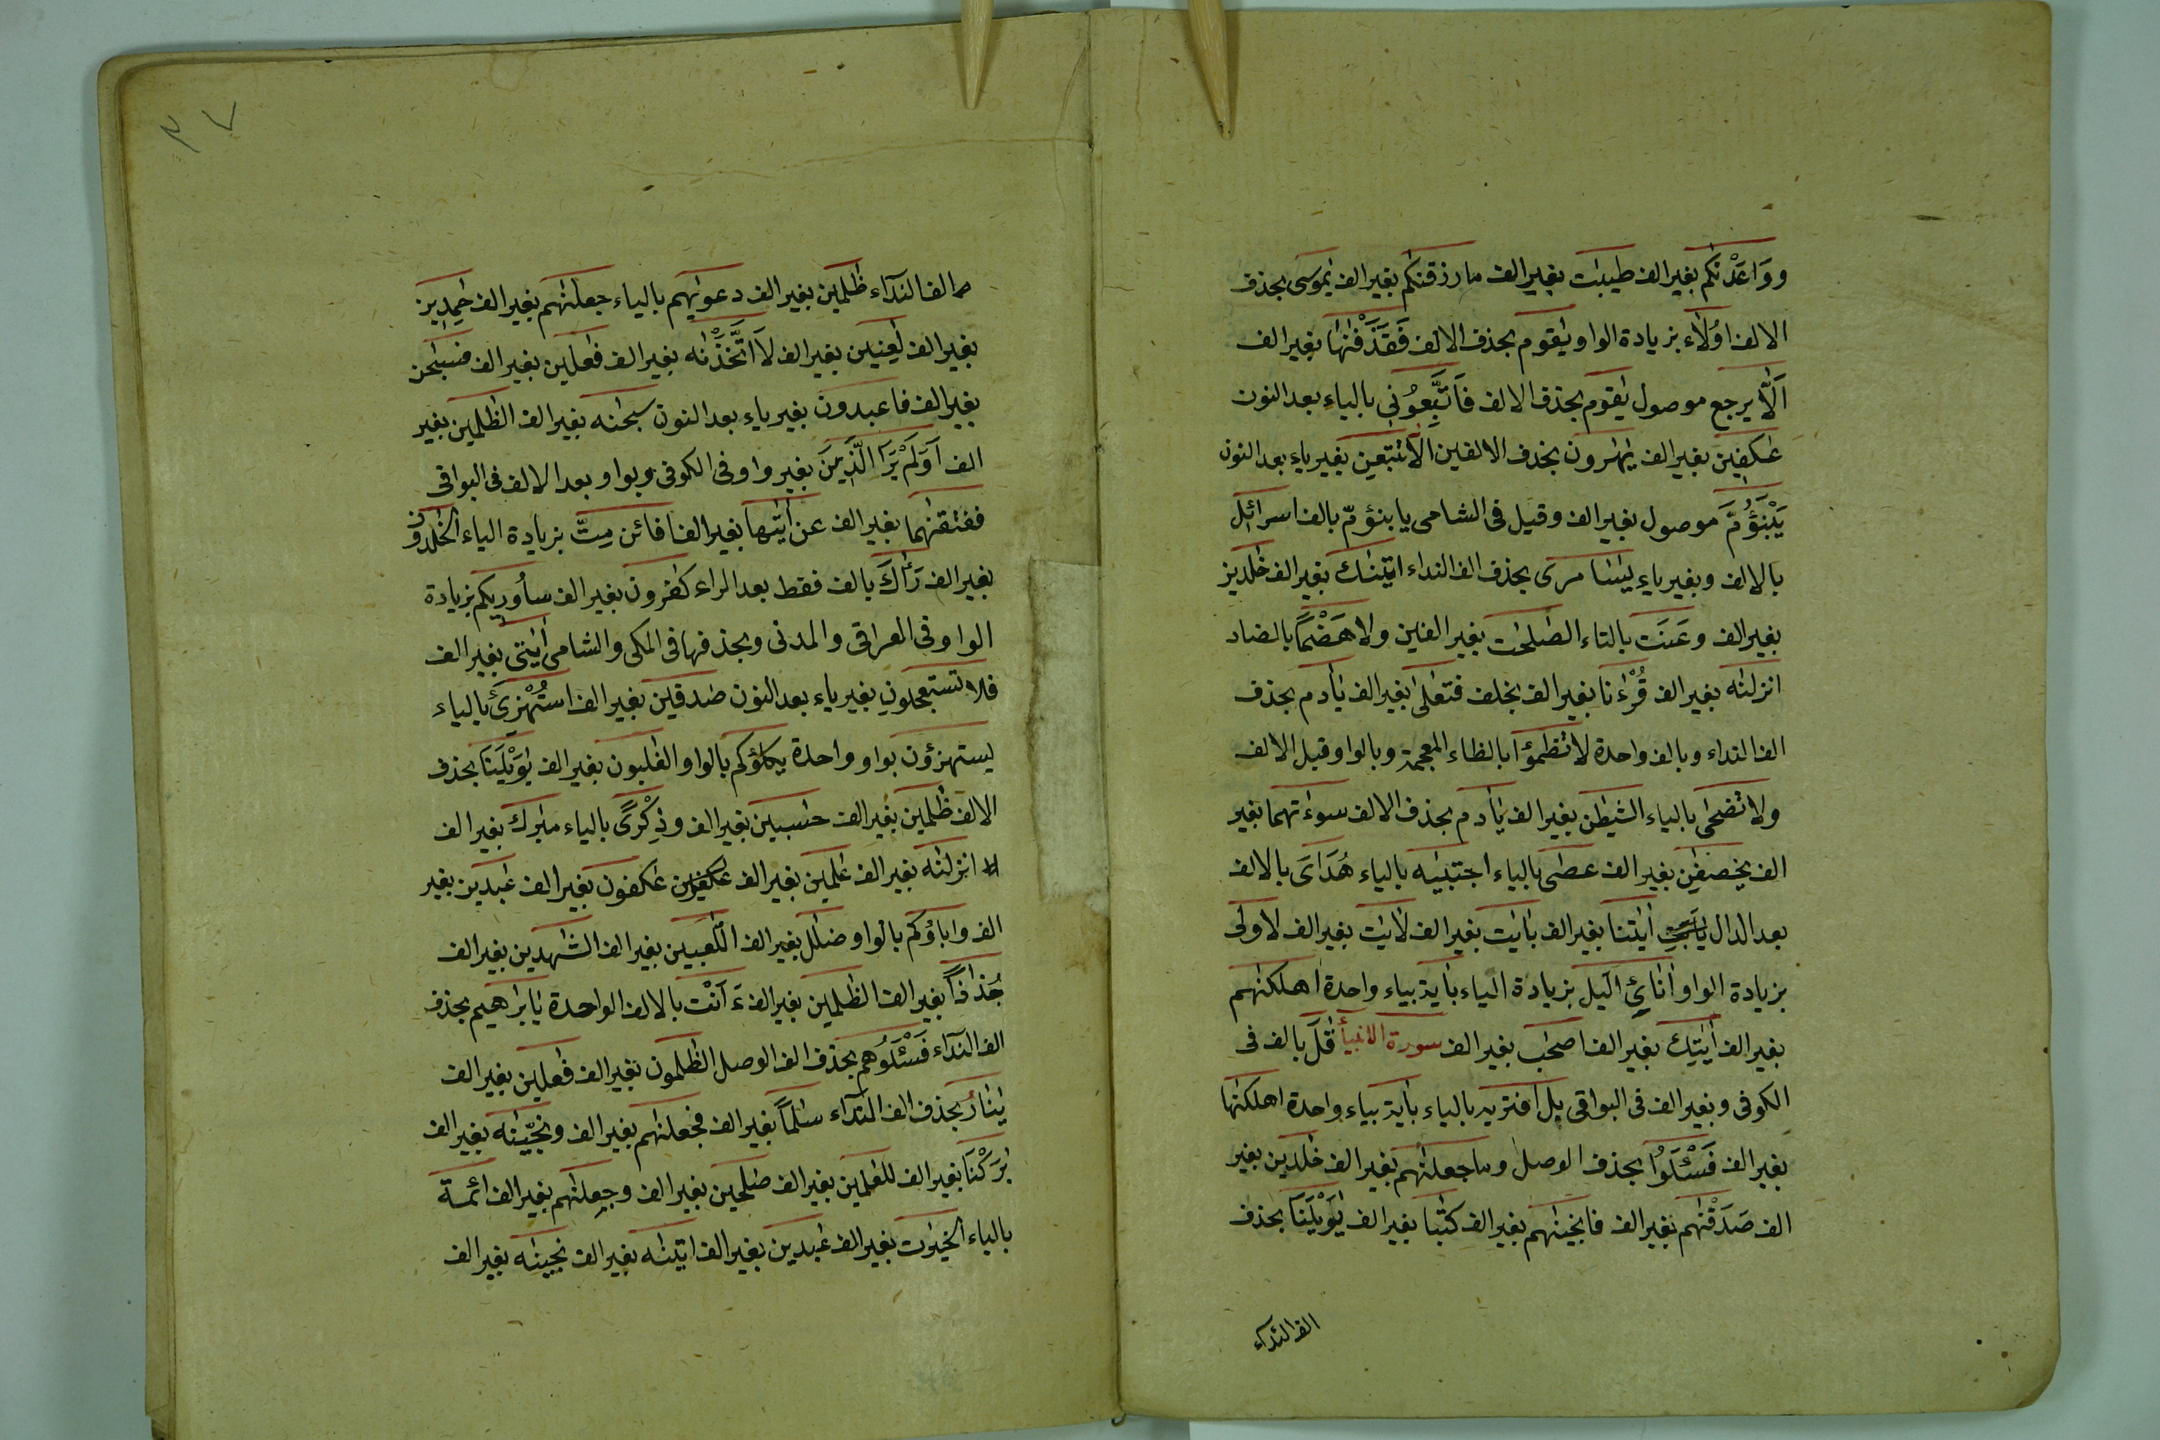 ووَاعَدْنٰكم بغير الف طيبٰت بغير الف ما رزقنٰكم بغير الف يٰموسى بحذف
الالف اُولَاء بزيادة الواو يٰقوم بحذف الالف فَقَذَفْنٰهَا بغير الف
اَلَّا يرجع موصول يٰقوم بحذف الالف فَاتَّبِعُونى بالياء بعد النون
عٰكفين بغير الف يٰهٰرون بحذف الالفين الّا تتبعن بغير ياء بعد النون
يَبْنَؤُمَّ موصول بغير الف وقيل فى الشامى يا بنؤمّ بالف اسرائل
بالالف وبغير ياء يٰسَامرى بحذف الف النداء اتينٰك بغير الف خٰلدين
بغير الف وعَنَت بالتاء الصّٰلحٰت بغير الفين ولا هَضْمًا بالضاد
انزلنٰه بغير الف قُرْءٰنا بغير الف بخلف فتعٰلى بغير الف يٰادم بحذف
الف النداء وبالف واحدة لا تظمؤا بالظاء المعجمة وبالواو قبل الالف
ولا تضحى بالياء الشيطٰن بغير الف يٰادم بحذف الالف سوءٰتهما بغير
الف يخصفٰن بغير الف عصى بالياء اجتبيٰه بالياء هُدَاىَ بالالف
بعد الدال اٰيٰتنا بغير الف باٰيٰت بغير الف لاٰيٰت بغير الف لاولى
بزيادة الواو اٰنائ اليل بزيادة الياء باٰية بياء واحدة اهلكنٰهم
بغير الف اٰيٰتك بغير الف اصحٰب بغير الف سورة الانبيأ قٰلَ بالف فى
الكوفى وبغير الف فى البواقى بل افتريه بالياء باٰية بياء واحدة اهلكنٰها
بغير الف فَسْئَلُوْا بحذف الوصل وما جعلنٰهم بغير الف خٰلدين بغير
الف صَدَقْنٰهم بغير الف فانجينٰهم بغير الف كتٰبا بغير الف يٰوَيْلَنَا بحذف
الف النداء
٣٧
الف النداۤء ظٰلمين بغير الف دعويٰهم بالياء جعلنٰهم بغير الف خٰمدين
بغير الف لٰعبين بغير الف لاَ اتَّخَذْنٰه بغير الف فٰعلين بغير الف فسبحٰن
بغير الف فاعبدون بغير ياء بعد النون سبحٰنه بغير الف الظٰلمين بغير
الف اَوَلَمْ يَرَ الَّذِيْنَ بغير واو فى الكوفى وبواو بعد الالف فى البواقى
ففتقنٰهما بغير الف عن اٰيٰتها بغير الف افائن مِتَّ بزيادة الياء الخٰلدون
بغير الف رَاٰكَ بالف فقط بعد الراء كٰفرون بغير الف سأوريكم بزيادة
الواو فى العراقى والمدنى وبحذفها فى المكى والشامى اٰيٰتى بغير الف
فلا تستعجلون بغير ياء بعد النون صٰدقين بغير الف اسْتُهْزِئَ بالياء
يستهزؤن بواو واحدة يكلؤكم بالواو الغٰلبون بغير الف يٰوَيْلَنَا بحذف
الالف ظٰلمين بغير الف حٰسبين بغير الف وذِكْرًى بالياء مبٰرك بغير الف
انزلنٰه بغير الف عٰلمين بغير الف عٰكفون بغير الف عٰبدين بغير
الف واباؤكم بالواو ضلٰل بغير الف اللّٰعبين بغير الف الشّٰهدين بغير الف
جُذٰذًا بغير الف الظٰلمين بغير الف ءَاَنْت بالالف الواحدة يٰابرٰهيم بحذف
الف النداۤء فَسْئَلُوْهُم بحذف الف الوصل الظٰلمون بغير الف فٰعلين بغير الف
يٰنَارُ بحذف الف النداۤء سلٰمًا بغير الف فجعلنٰهم بغير الف ونجّينٰه بغير الف
بٰرَكْنَا بغير الف للعٰلمين بغير الف صٰلحين بغير الف وجعلنٰهم بغير الف ائمة
بالياء الخيرٰت بغير الف عٰبدين بغير الف اتينٰه بغير الف نجينٰه بغير الف